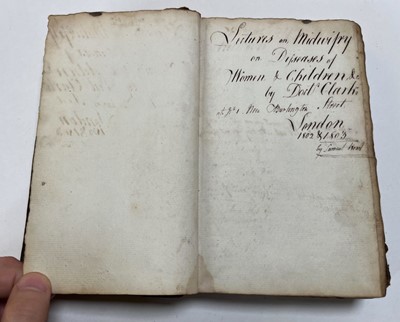 Lectures on Midwifry
on Diseases of
Women & Children &c
by Doctr. Clark
at No. 1 New Burlington Street
London
1802 & 1803
by Samuel